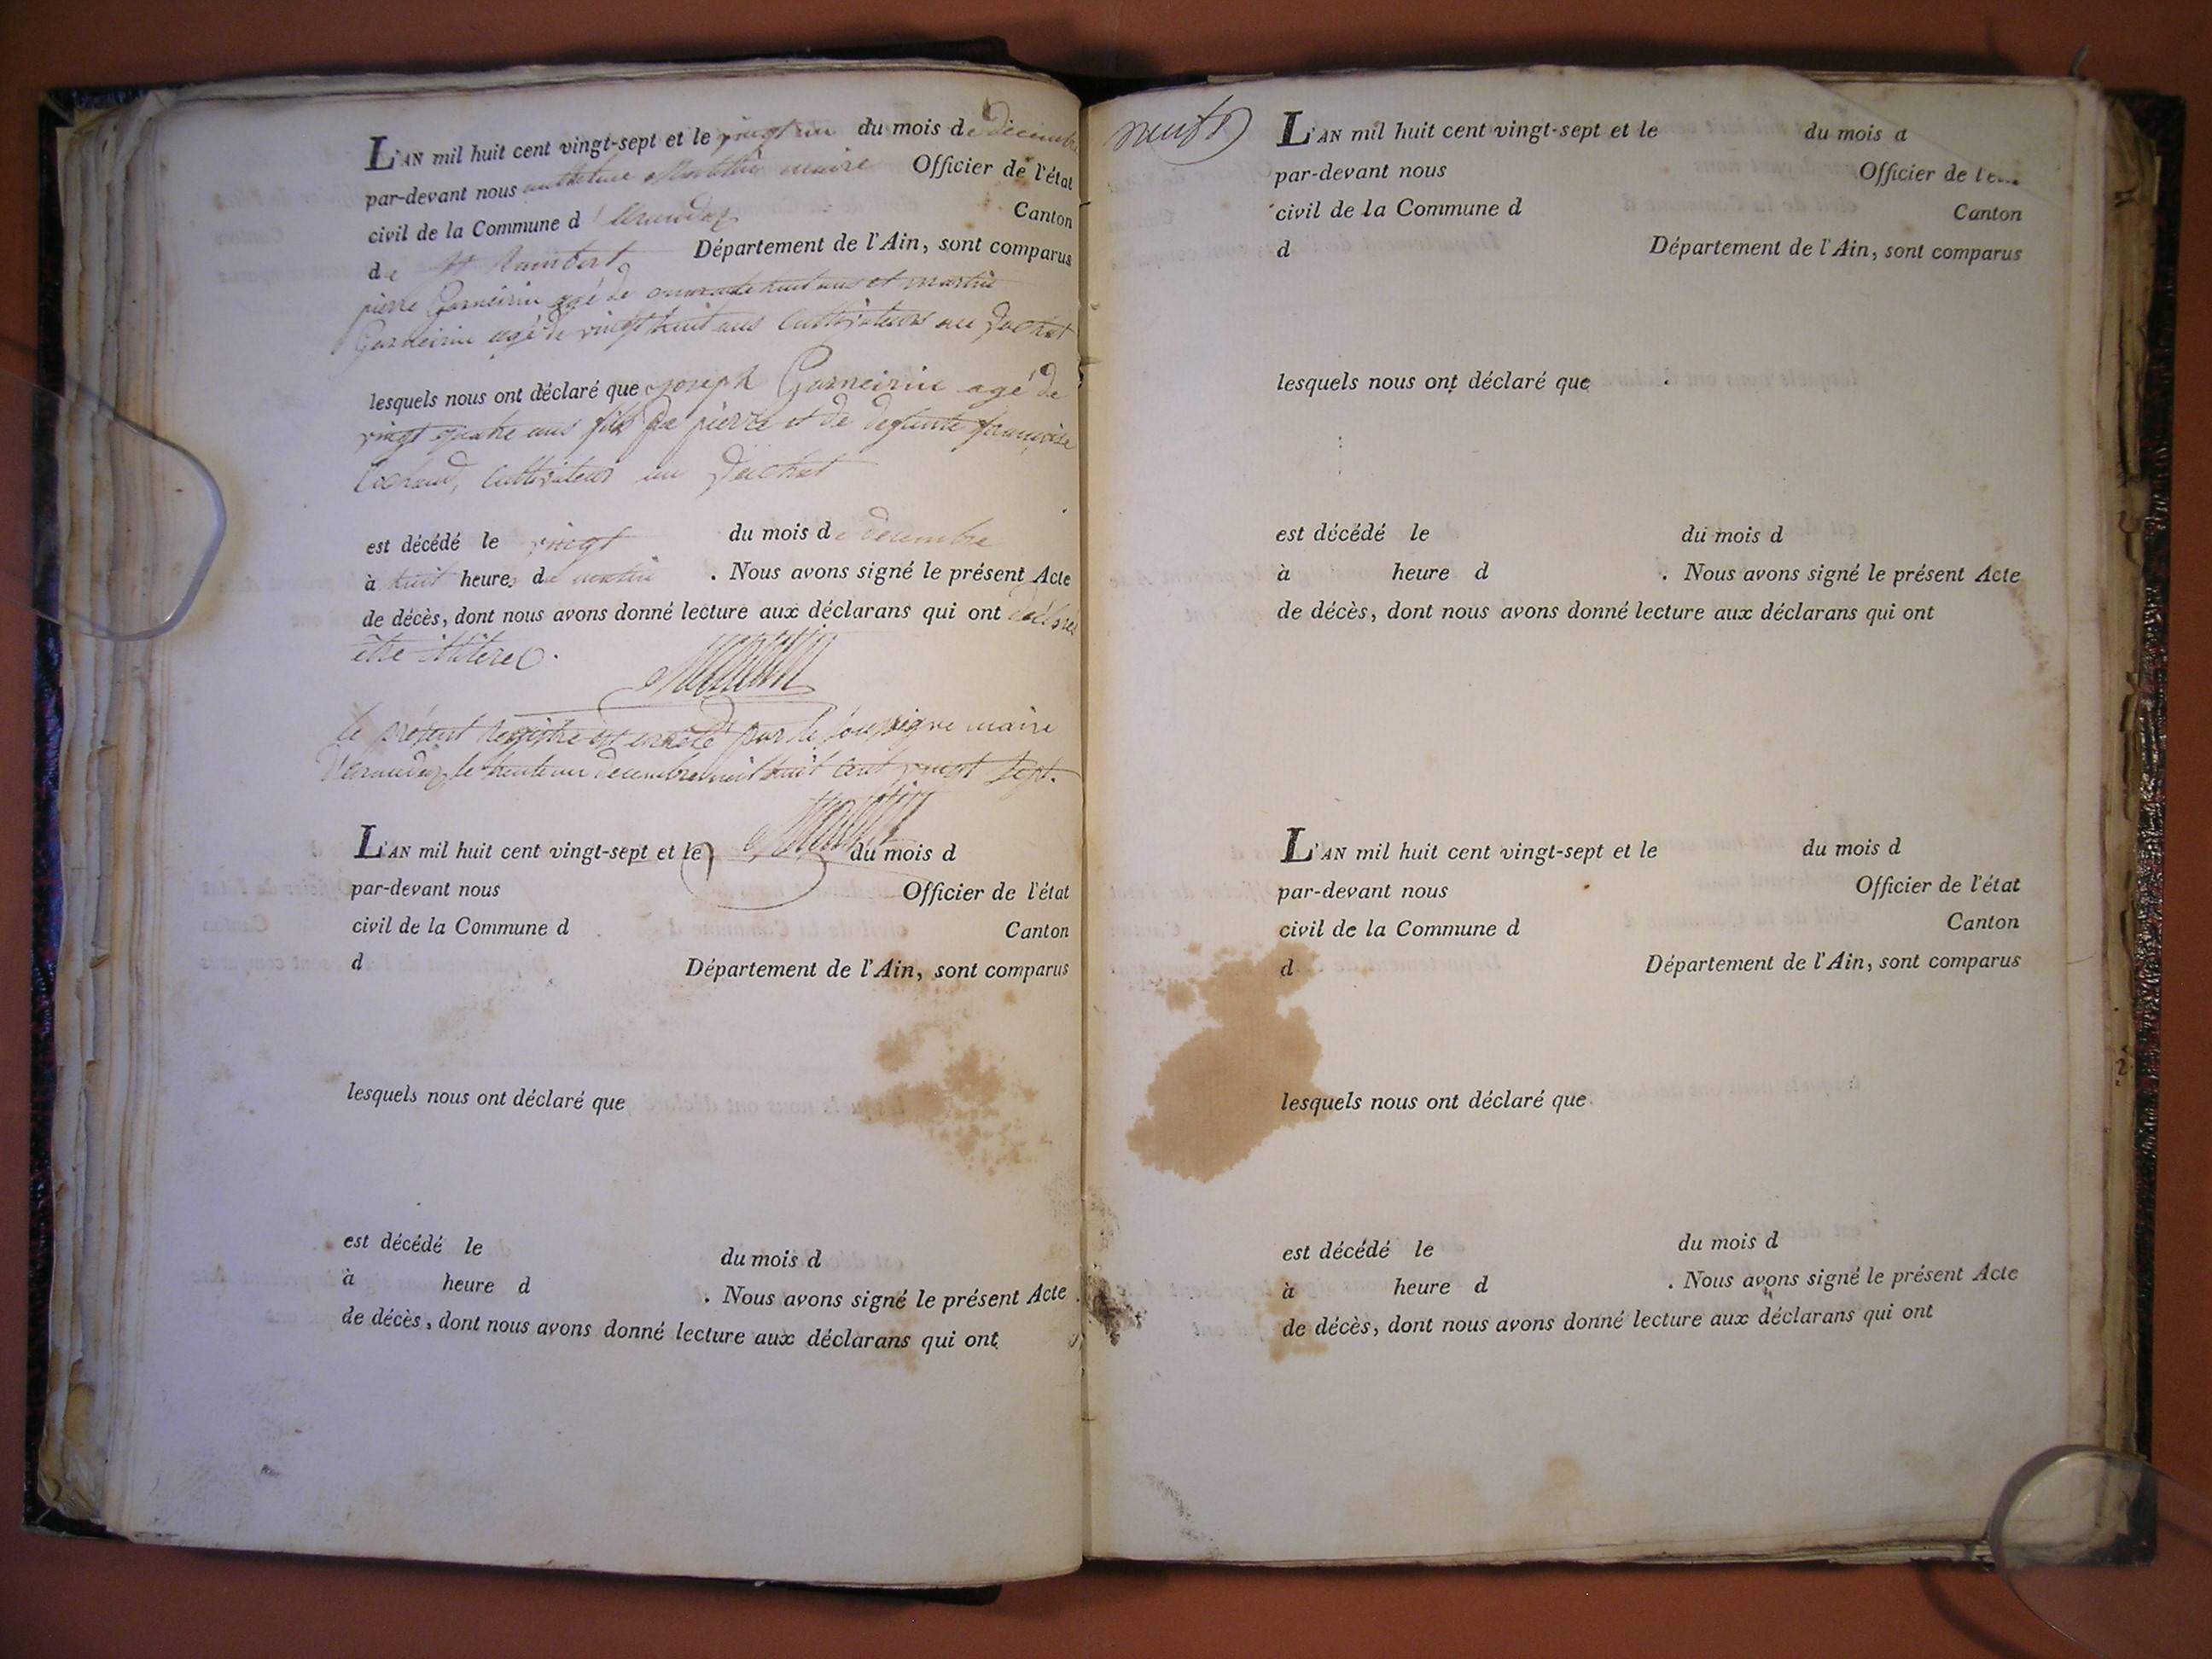 L'AN mil huit cent vingt-sept et le vingt un du mois de décembre
par-devant nous anthelme Martin maire Officier de l'état
civil de la Commune d' Canton
de St Rambert Département de l'Ain, sont comparus
pierre Garneirin agé de huit ans et martin
Garneirin agé de vingt huit ans Cultivateurs au
lesquels nous ont déclaré que joseph Garneirin agé de
vingt quatre ans fils de pierre et de deffunte françoise
Cultivateur au
est décédé le vingt du mois de décembre
à huit heures du matin . Nous avons signé le présent Acte
de décès, dont nous avons donné lecture aux déclarans qui ont déclarés
être
Martin
le présent Registre est arrêté par le soussigné maire
le trente un decembre mil huit cent vingt sept.
Martin
L'AN mil huit cent vingt-sept et le du mois d
par-devant nous Officier de l'état
civil de la Commune d Canton
d Département de l'Ain, sont comparus
lesquels nous ont déclaré que
est décédé le du mois d
à heure d . Nous avons signé le présent Acte
de décès, dont nous avons donné lecture aux déclarans qui ont
L'AN mil huit cent vingt-sept et le du mois d
par-devant nous Officier de
civil de la Commune d Canton
d Département de l'Ain, sont comparus
lesquels nous ont déclaré que
est décédé le du mois d
à heure d . Nous avons signé le présent Acte
de décès, dont nous avons donné lecture aux déclarans qui ont
L'AN mil huit cent vingt-sept et le du mois d
par-devant nous Officier de l'état
civil de la Commune d Canton
d Département de l'Ain, sont comparus
lesquels nous ont déclaré que
est décédé le du mois d
à heure d . Nous avons signé le présent Acte
de décès, dont nous avons donné lecture aux déclarans qui ont